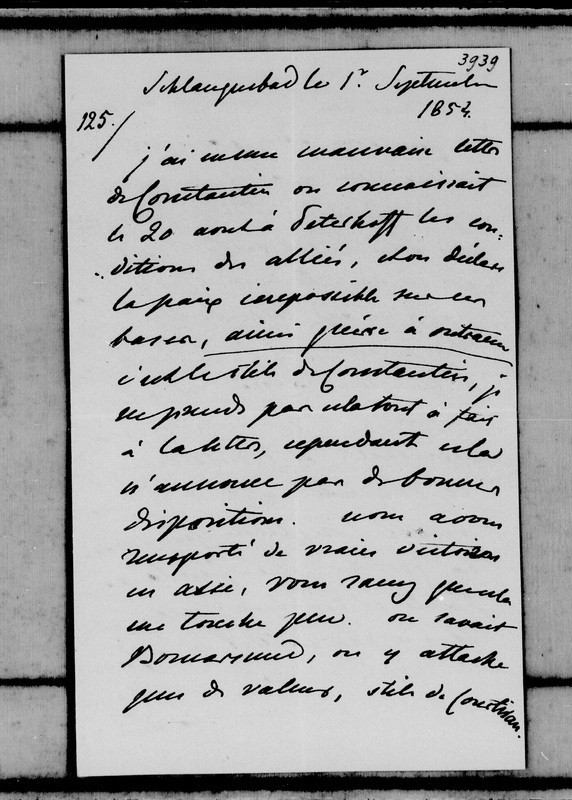 3939
Schlangenbad le 1r Septembre
1854.
125./
j'ai une mauvaise lettre
de Constantin on connaissait
le 20 aout à Peterhoff les con-
ditions des alliés, et on déclare
la paix impossible sur ces
bases, ainsi guerre à outrance
c'est le stile de Constantin, je
ne prends pas cela tout à fait
à la lettre, cependant cela
n'annonce pas de bonnes
dispositions. nous avons
remporté de vraies victoires
en asie, vous savez que cela
me touche peu. on savait
Bomarsund, on y attache
peu de valeur, stile de Courtisan.